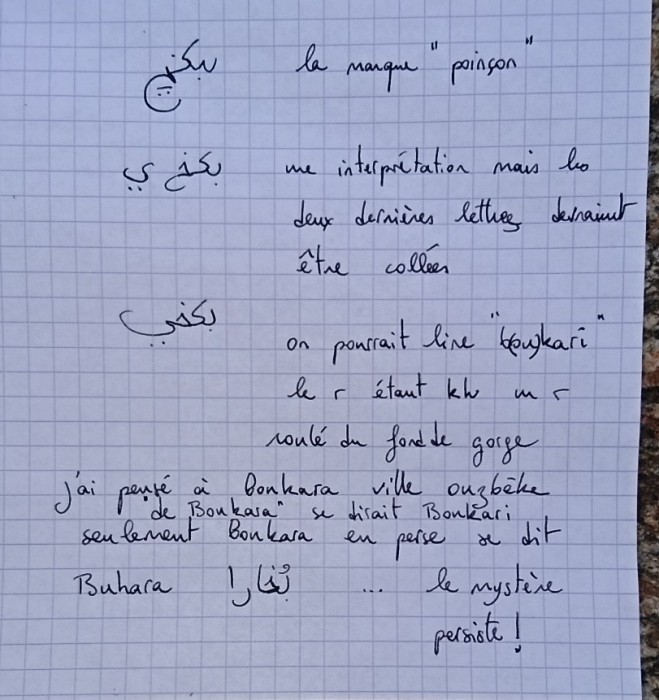 la marque "poinçon"
بكخ ي une interprétation mais les
deux dernières lettres devraient
être collées
بكخي
on pourrait lire "boukari"
le r étant kh un r
roulé du fond de gorge
j'ai pensé à Boukara ville ouzbèke
"de Boukara" se dirait Boukari
seulement Boukara en perse se dit
Buhara بُخارا ... le mystère
persiste !